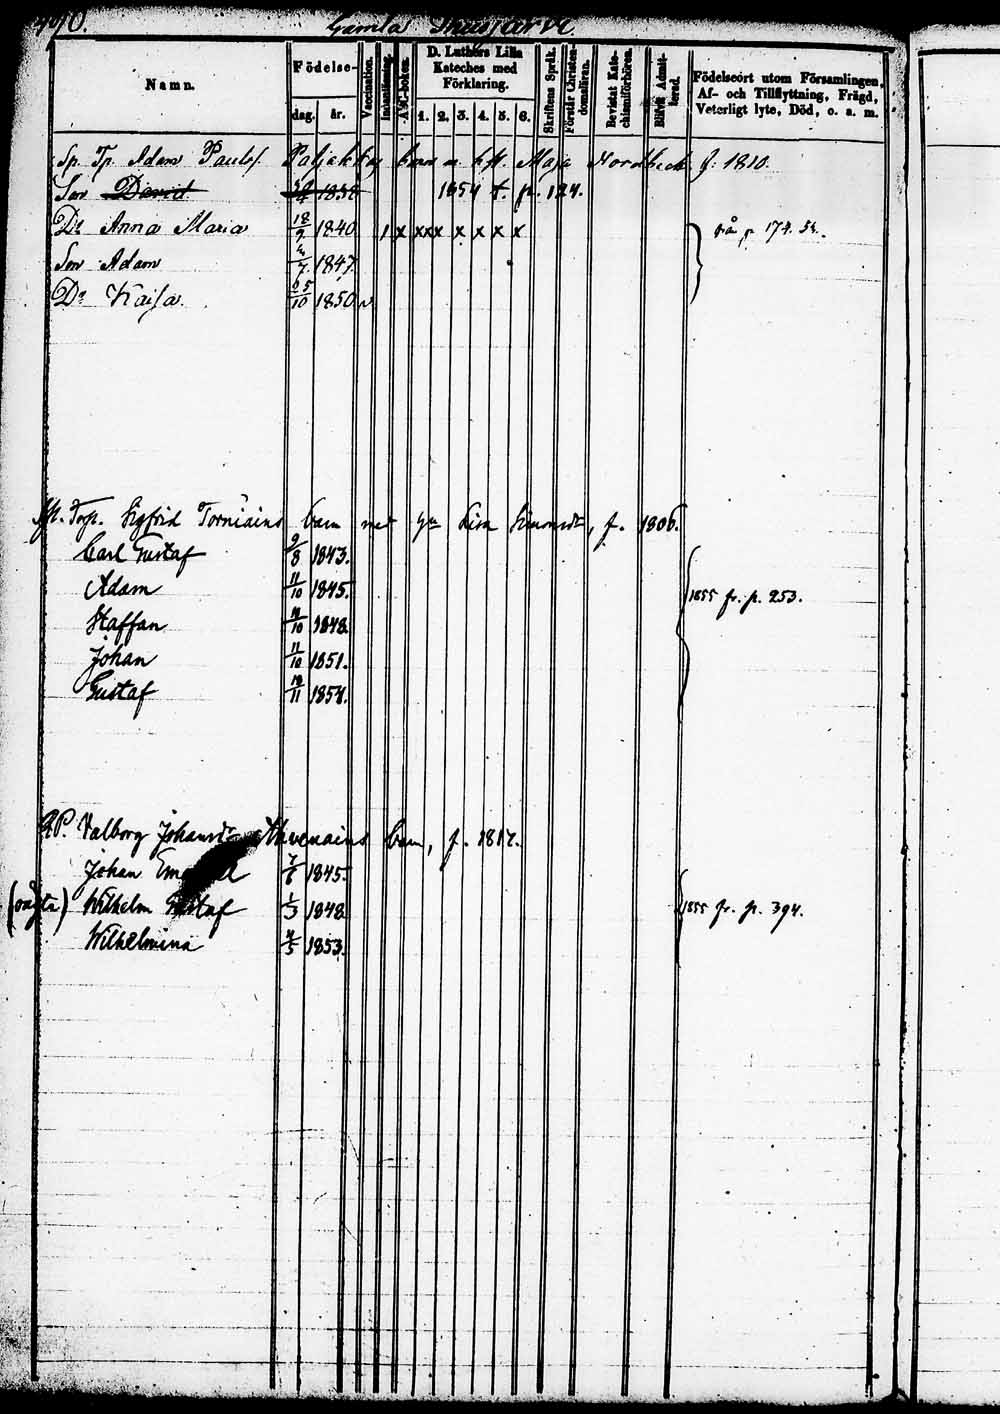 Gamla
Namn.
Födelse-
dag. år.
Vaccination.
Innanläsning.
ABC-boken.
D. Luthers Lilla
Kateches med
Förklaring.
1. 2. 3. 4. 5. 6.
Skriftens Språk.
Förstår Christen-
domsläran.
Bevistat Kate-
chismiförhören.
Blifvit Admit-
terad.
Födelseort utom Församlingen,
Af- och Tillflyttning, Frägd,
Veterligt lyte, Död, o. a. m.
Sp. Tp. Adam Paulsf. barn m. hst. Maja Nordbeck f. 1810.
Son David 1838 1854 fr. p. 124.
Dr Anna Maria 18/9 1840 1 x xxx x x x x
från p 174. 54.
Son Adam /7 1847.
Dr Kaisa. /10 1850 v
Torp. Sigfrid Torniains barn med Lisa Simonsdr, f. 1806.
Carl Gustaf 9/8 1843.
Adam 11/10 1845.
1855 fr. p. 253.
Staffan /10 1848.
Johan 11/10 1851.
Gustaf /11 1854.
Valborg Johansdr barn, f. 1817.
Johan 7/6 1845.
Wilhelm Gustaf 1/3 1848.
1855 fr. p. 394.
Wilhelmina /5 1853.